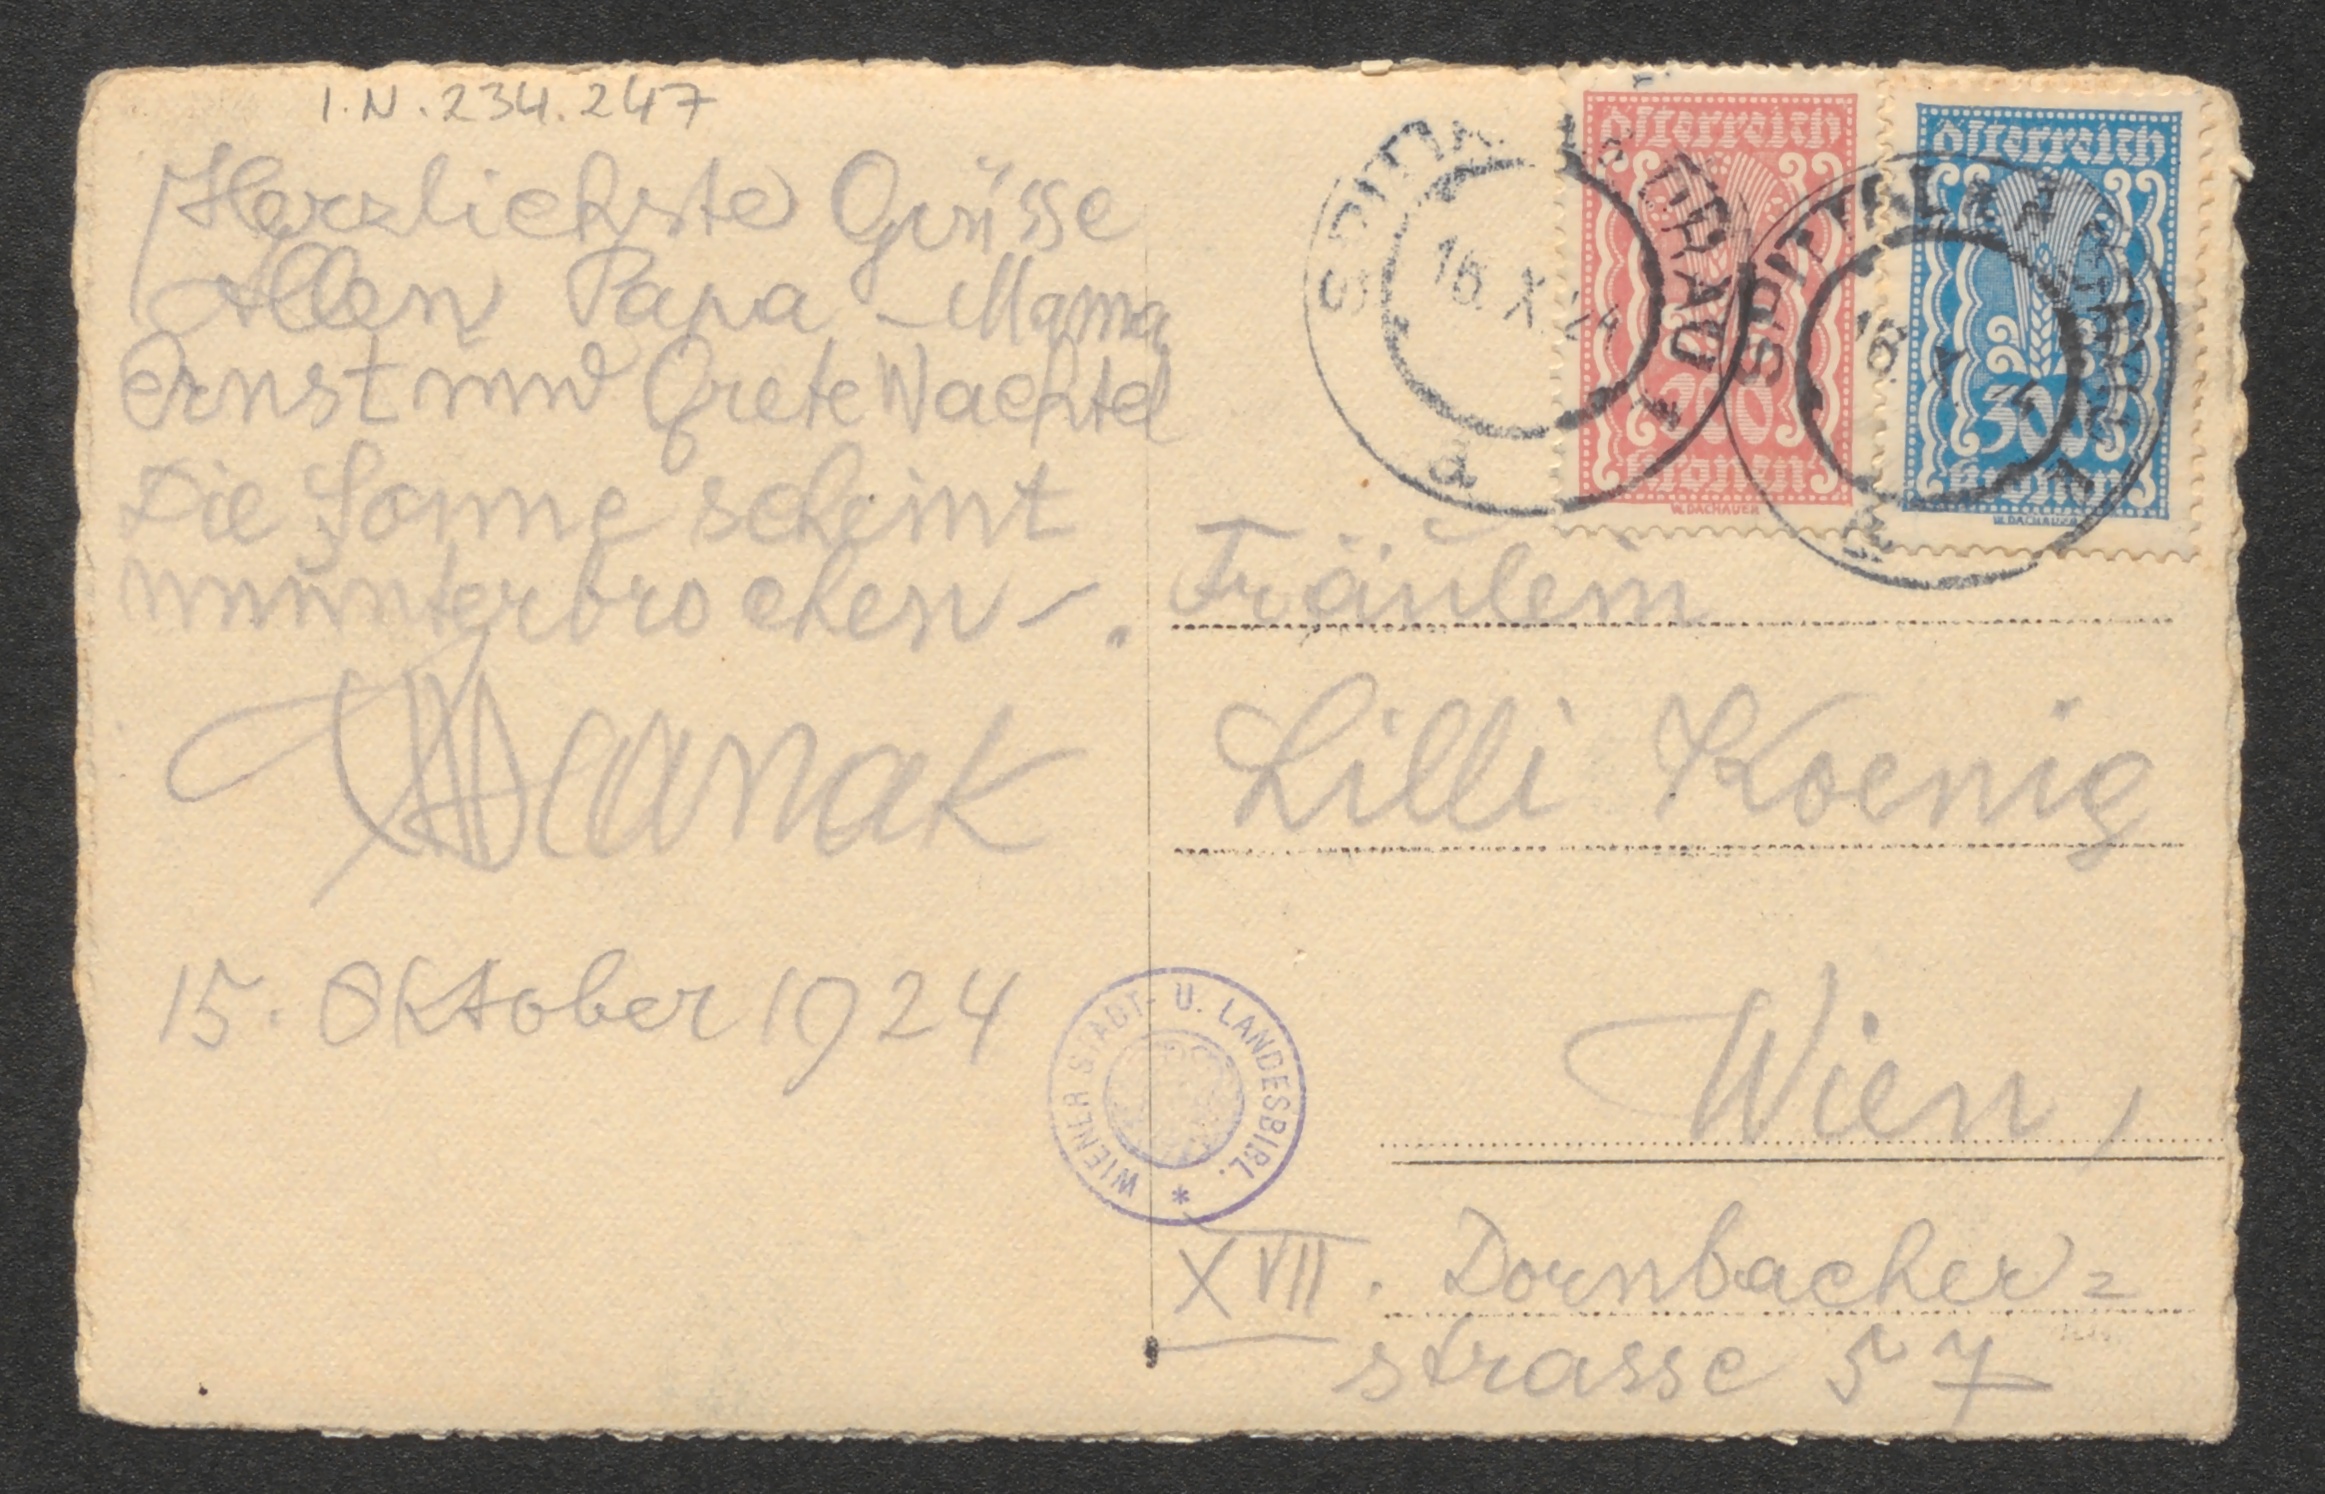 I.N. 234.247
Herzlichste Grüsse
Allen Papa Mama
Ernst und Grete Wachtel
Die Sonne scheint
ununterbrochen –.
Hanak
15. Oktober 1924
österreich
200
Kronen
W. DACHAUER
österreich
300
Kronen
W. DACHAUER
SPITTAL A. D. DRAU
16. X. 24
a
SPITTAL A. D. DRAU
16. X. 24
Fräulein
Lilli Koenig
Wien,
XVII. Dornbacher=
strasse 57
WIENER STADT- U. LANDESBIBL. *